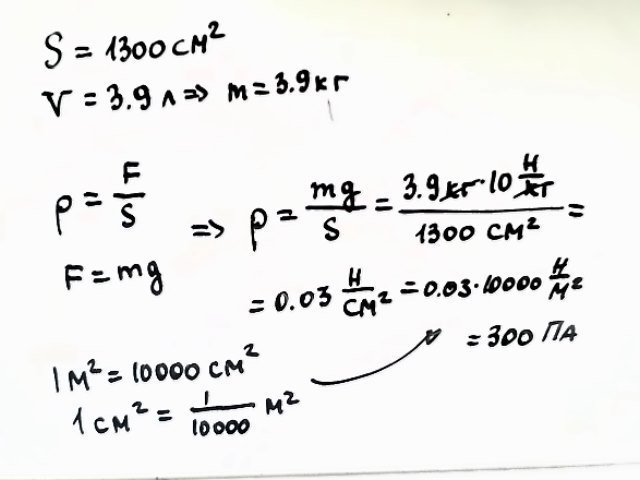 S = 1300 см²
V = 3.9 л => m = 3.9 кг
p = F/S
F = mg
=> p = mg/S = 3.9 кг · 10 Н/кг / 1300 см² =
= 0.03 Н/см² = 0.03 · 10000 Н/м²
= 300 Па
1 м² = 10000 см²
1 см² = 1/10000 м²